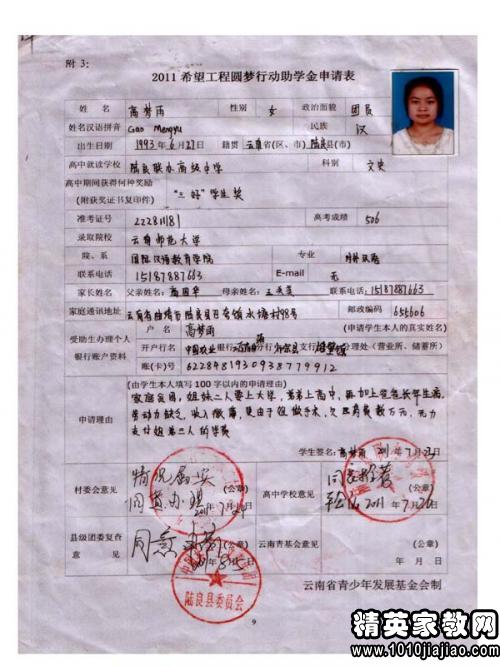 附 3:
2011 希望工程圆梦行动助学金申请表
姓 名 高梦雨 性别 女 政治面貌 团员
姓名汉语拼音 Gao Mengyu 民族 汉
出生日期 1993年6月27日 籍贯 云南省(区、市) 陆良县(市)
高中就读学校 陆良联办高级中学 科别 文史
高中期间获得何种奖励 (附获奖证书复印件) "三好"学生奖
准考证号 222811181 高考成绩 506
录取院校 云南师范大学
院、系 国际汉语教育学院 专业
联系电话 15187887663 E-mail 无
家长姓名 父亲姓名: 母亲姓名: 联系电话: 15187887663
家庭通讯地址 云南省曲靖市陆良县 村98号 邮政编码 655606
受助生办理个人银行账户资料 户 名 高梦雨 (申请学生本人的真实姓名)
开户行 中国农业 银行 分行 支行 分理处(营业所、储蓄所)
账(卡)号 6228481930938779912
申请理由 (由学生本人填写100字以内的申请理由)
家庭贫困,姐妹二人要上大学,弟弟上高中,再加上爸爸长年生病,
劳动力缺乏,收入微薄,更由于姐做手术,欠医药费数万元,无力
支付姐弟三人的学费
学生签名: 高梦雨 2011年7月23日
村委会意见 情况属实 同意办理 (公章)
高中学校意见 同意推荐 (公章) 2011年7月26日
县级团委复查意见 同意 (公章)
云南青基会意见 (公章) 年 月 日
陆良县委员会
云南省青少年发展基金会制
9
精英家教网
www.1010jiajiao.com